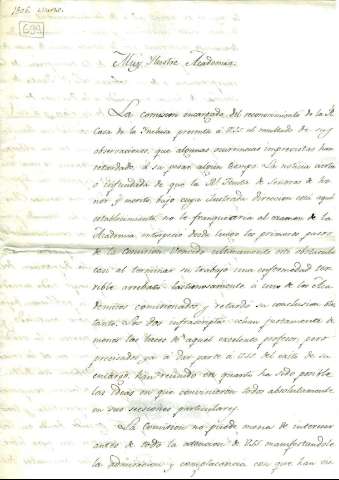 1806 Marzo.
Muy Ilustre Academia.
La comision encargada del reconocimiento de la Rl
Casa de la Inclusa presenta á V.S.I. el resultado de sus
observaciones, que algunas ocurrencias imprevistas han
retardado, á su pesar algun tiempo. La noticia cierta
ó infundada de que la Rl Junta de Senoras de ho
nor y merito, bajo cuya ilustrada direccion está aquel
establecimiento, no le franquearia al examen de la
Academia entorpeció desde luego los primeros pasos
de la comision. Vencido ultimamente este obstaculo
casi al terminar su trabajo una enfermedad ter
rible arrebató lastimosamente á uno de los Aca
demicos comisionados y retardó su conclusion
tanto. Los dos infrascriptos echan justamente de
menos las luces de aquel excelente profesor, pero
precisados ya á dar parte á V.S.I. del exito de su
encargo, han reunido en quanto ha sido posible
las ideas en que convinieron todos absolutamente
en sus sesiones particulares.
La comision no puede menos de interesar
antes de todo la atencion de V.S.I. manifestandole
la admiracion y complacencia con que han